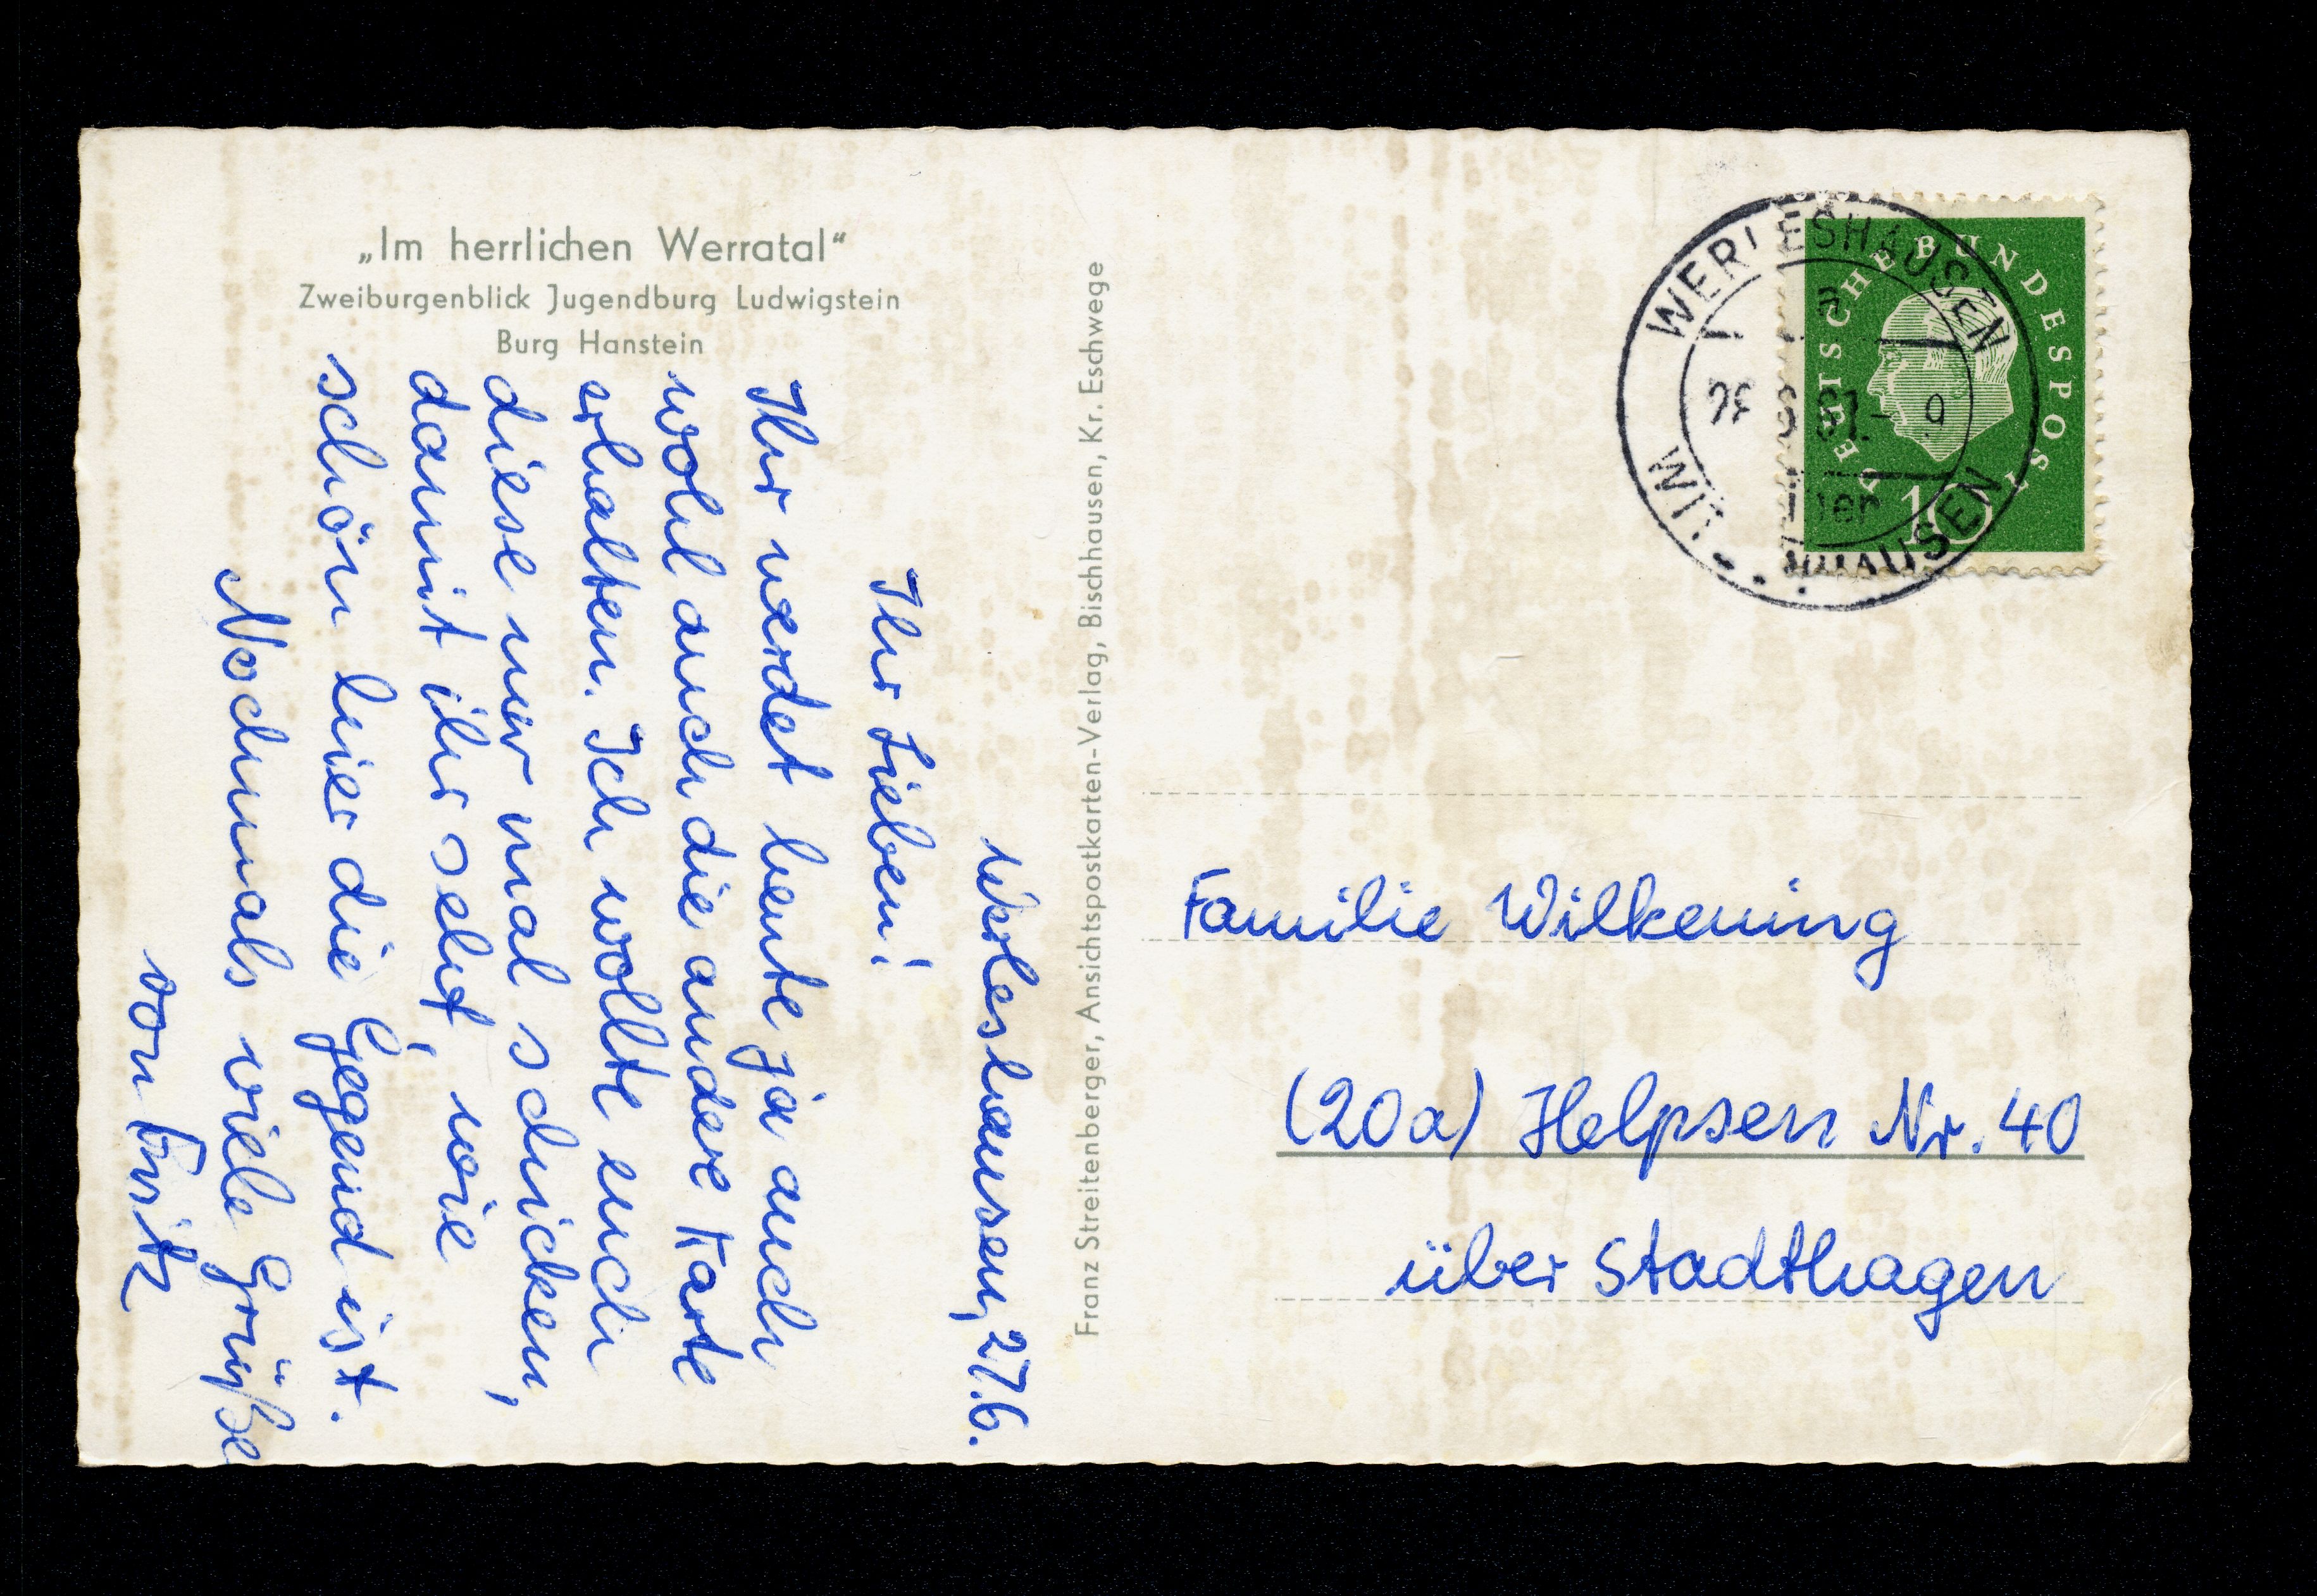 „Im herrlichen Werratal“
Zweiburgenblick Jugendburg Ludwigstein
Burg Hanstein
Werleshausen, 27.6.
Ihr Lieben!
Ihr werdet heute ja auch
wohl auch die andere Karte
erhalten. Ich wollte euch
diese nur mal schicken,
damit ihr seht, wie
schön hier die Gegend ist.
Nochmals viele Grüße
von Fritz
Franz Streitenberger, Ansichtspostkarten-Verlag, Bischhausen, Kr. Eschwege
WERLESHAUSEN
DEUTSCHE BUNDESPOST
10
Familie Wilkening
(20a) Helpsen Nr. 40
über Stadthagen